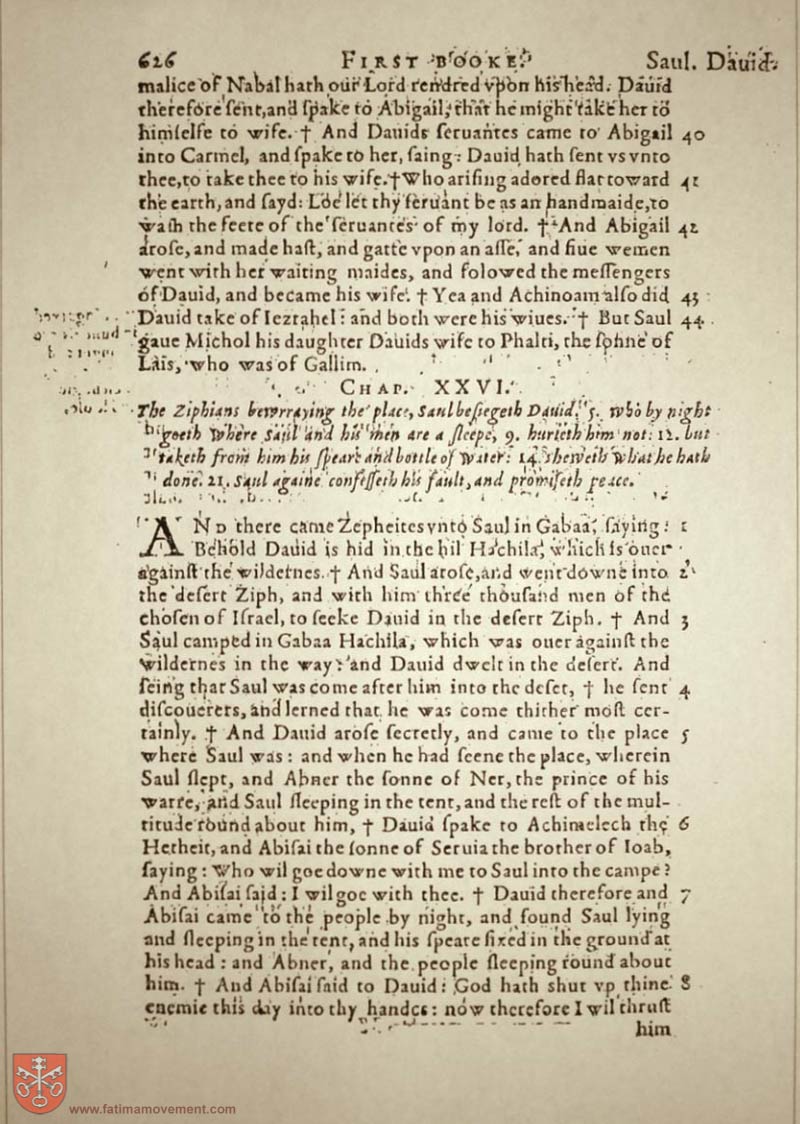 626 FIRST BOOKE Saul. Dauid.
malice of Nabal hath our Lord rendred vpon his head. Dauid
therefore sent, and spake to Abigail, that he might take her to
himselfe to wife. † And Dauids seruantes came to Abigail 40
into Carmel, and spake to her, saing: Dauid hath sent vs vnto
thee, to take thee to his wife. † Who arising adored flat toward 41
the earth, and sayd: Loe let thy seruant be as an handmaide, to
wash the feete of the seruantes of my lord. † And Abigail 42
arose, and made hast, and gatte vpon an asse, and fiue wemen
went with her waiting maides, and folowed the messengers
of Dauid, and became his wife. † Yea and Achinoam also did 43
Dauid take of Iezrahel: and both were his wiues. † But Saul 44
gaue Michol his daughter Dauids wife to Phalti, the sonne of
Lais, who was of Gallim.
CHAP. XXVI.
The Ziphians bewraying the place, Saul besiegeth Dauid, 5. Who by night
goeth Where Saul and his men are a sleepe, 9. hurteth him not: 12. but
taketh from him his speare and bottle of Water: 14. sheweth What he hath
done. 21. Saul againe confesseth his fault, and promiseth peace.
AND there came Zepheites vnto Saul in Gabaa, saying: 1
Behold Dauid is hid in the hil Hachila, which is ouer
against the wildernes. † And Saul arose, and went downe into 2
the desert Ziph, and with him three thousand men of the
chosen of Israel, to seeke Dauid in the desert Ziph. † And 3
Saul camped in Gabaa Hachila, which was ouer against the
wildernes in the way: and Dauid dwelt in the desert. And
seing that Saul was come after him into the deset, † he sent 4
discouerers, and lerned that he was come thither most cer-
tainly. † And Dauid arose secretly, and came to the place 5
where Saul was: and when he had seene the place, wherein
Saul slept, and Abner the sonne of Ner, the prince of his
warre, and Saul sleeping in the tent, and the rest of the mul-
titude round about him, † Dauid spake to Achimelech the 6
Hetheit, and Abisai the sonne of Seruia the brother of Ioab,
saying: Who wil goe downe with me to Saul into the campe?
And Abisai said: I wil goe with thee. † Dauid therefore and 7
Abisai came to the people by night, and found Saul lying
and sleeping in the tent, and his speare fixed in the ground at
his head: and Abner, and the people sleeping round about
him. † And Abisai said to Dauid: God hath shut vp thine 8
enemie this day into thy handes: now therefore I wil thrust
him
www.fatimamovement.com